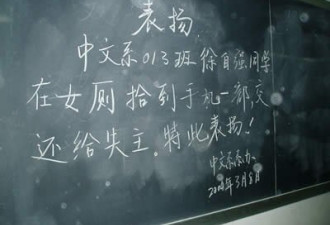 表扬
中文系013班徐自强同学
在女厕拾到手机一部,交
还给失主.特此表扬!
中文系系办.
年3月8日